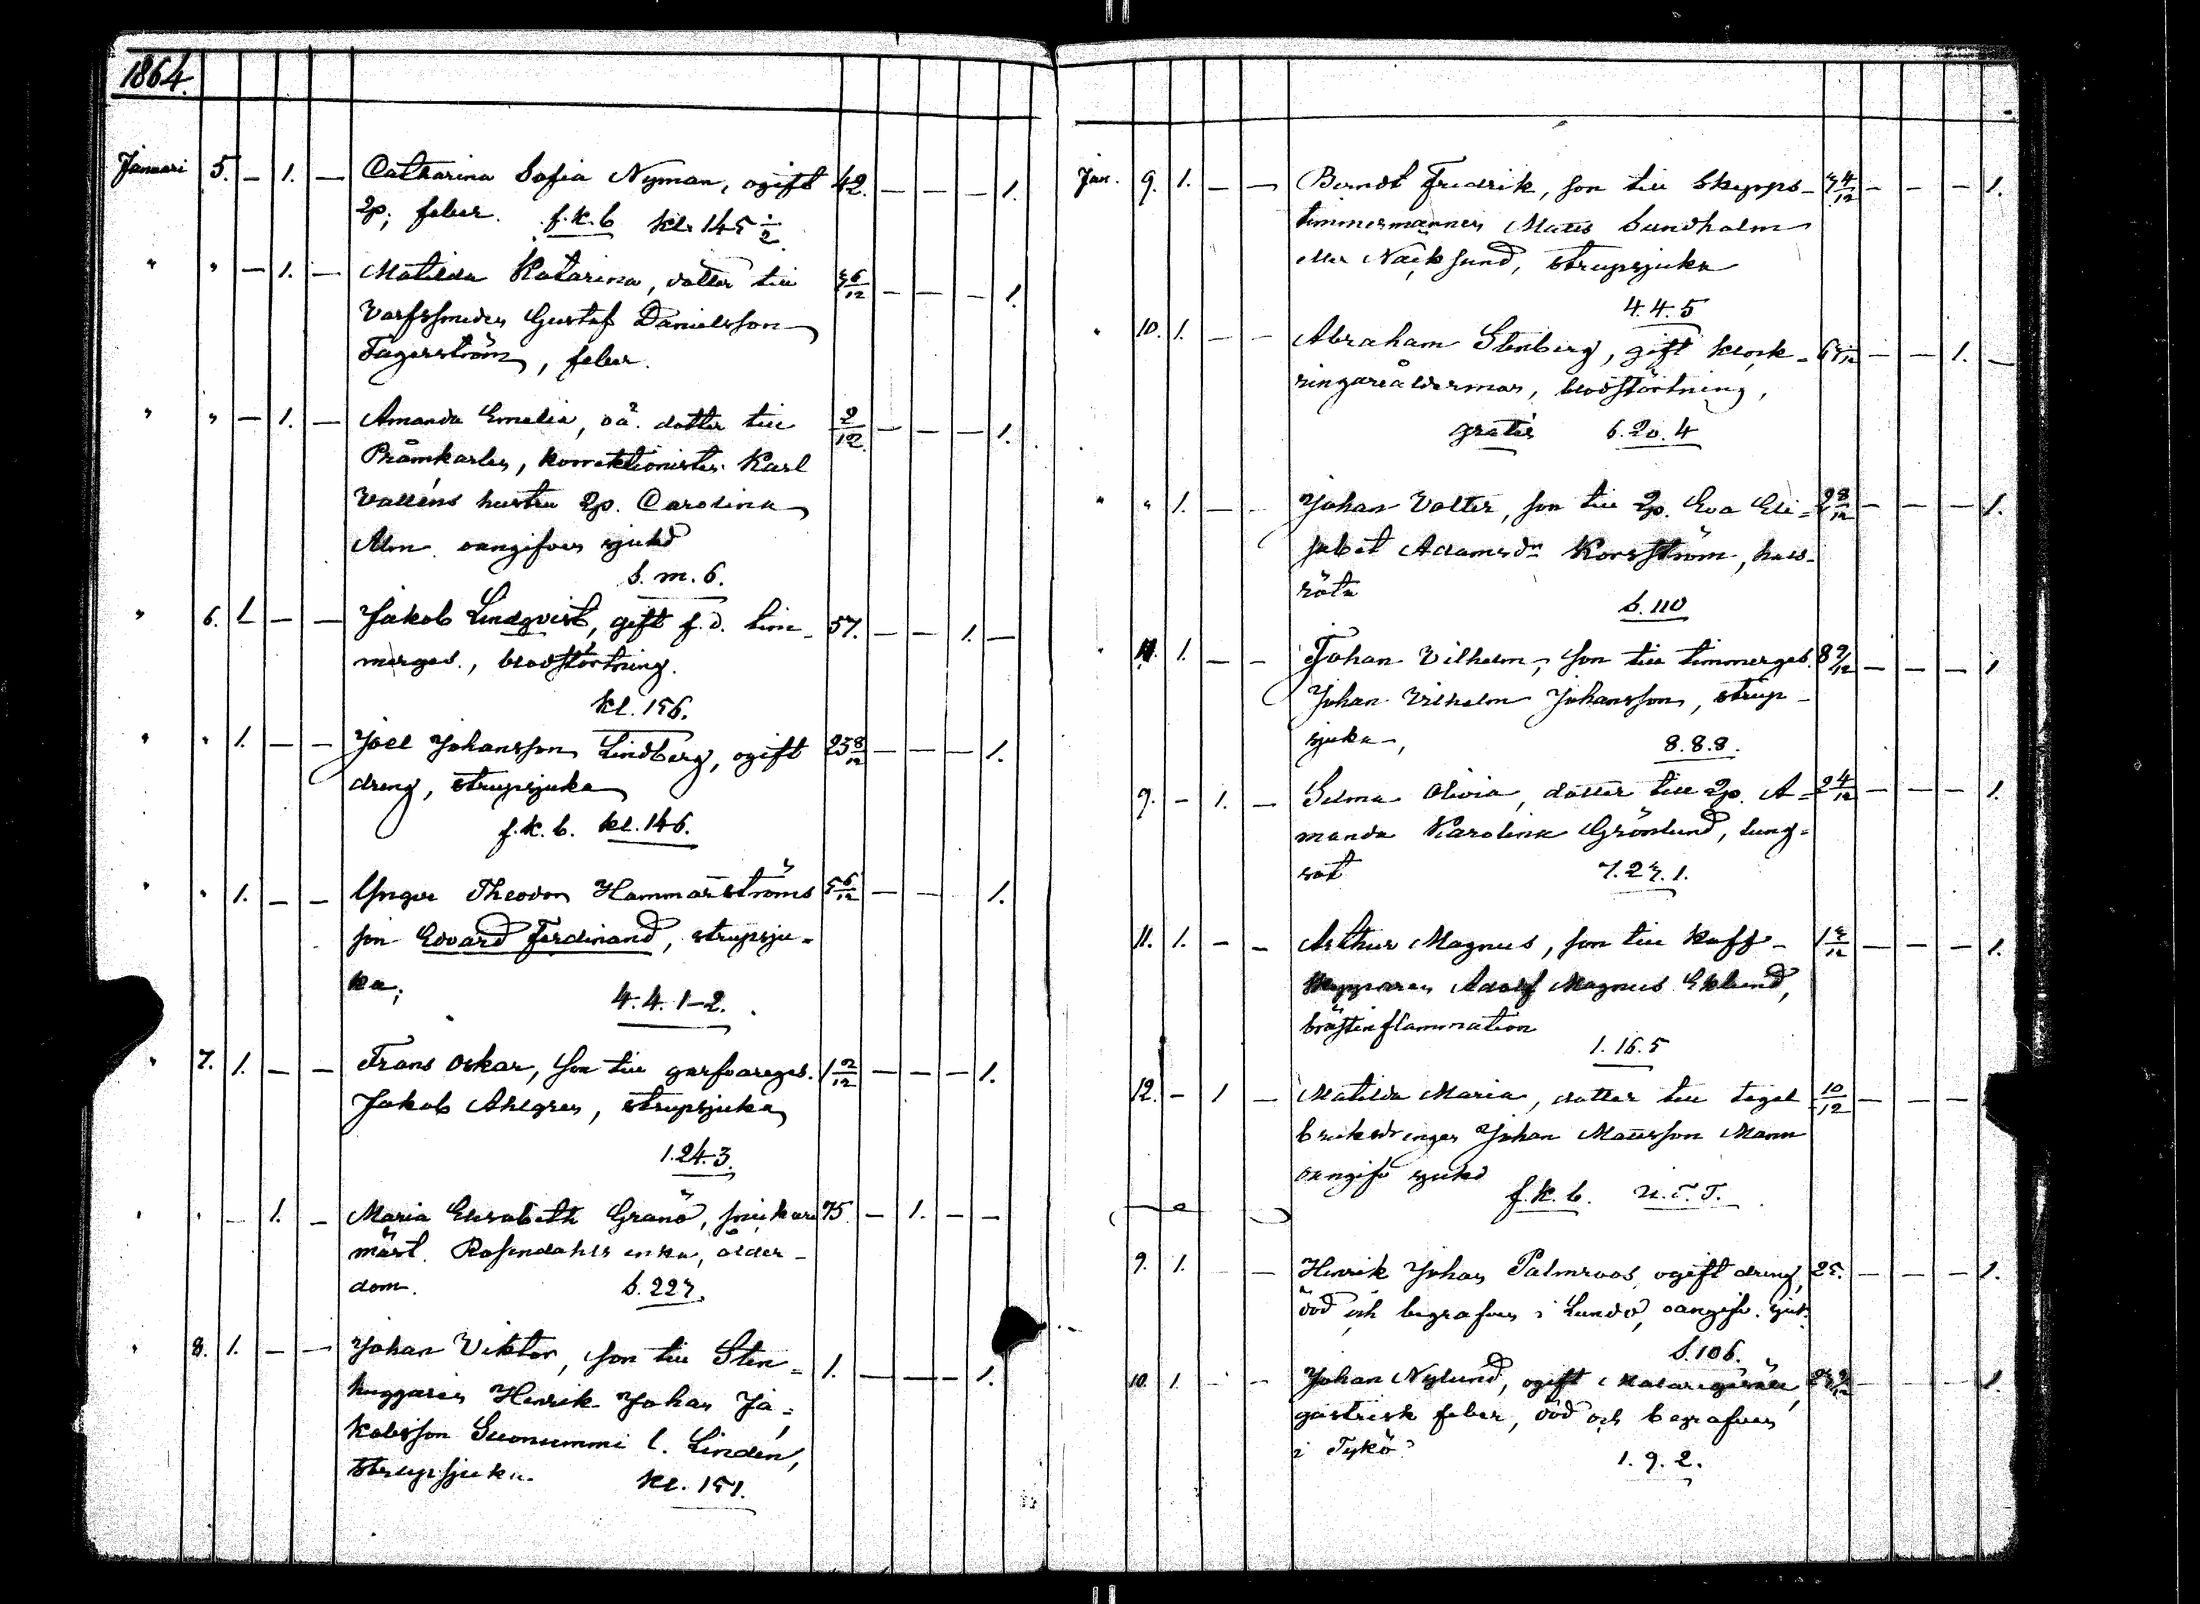 1864.
Januari 5. — 1. — Catharina Sofia Nyman, ogift 42. — — — 1.
2p; feber. f.k.b kl. 145 1/2
" " — 1. — Matilda Katarina, dotter till 3 6/12 — — — 1.
Varfssmeden Gustaf Danielsson
Fagerström, feber.
" " — 1. — Amanda Emelia, oä. dotter till 2/12 — — — 1.
Pråmkarlen, korrektionisten Karl
Valléns hustru 2p. Carolina
Alm oangifven sjukd
S. m. 6.
" 6. 1. — — Jakob Lindqvist, gift f.d. tim- 57. — — 1. —
merges., blodstörtning.
kl. 156.
" " 1. — — Joel Johansson Lindberg, ogift 25 8/12 — — — 1.
dreng, strupsjuka
f.k.b. kl. 146.
" " 1. — — Yngve Theodor Hammarströms 5 6/12 — — 1.
son Edvard Ferdinand, strupsju-
ka; 4. 4. 1-2.
" 7. 1. — — Frans Oskar, son till garfvareges. 1 2/12 — — — 1.
Jakob Ahlgren, strupsjuka
1.24.3.
" " — 1. — Maria Elisabeth Granö, snickare 75. — 1. — —
mäst. Rosendahls enka, ålder-
dom. S. 223.
" 8. 1. — — Johan Viktor, son till Sten- 1. — — — 1.
huggaren Henrik Johan Ja-
kobsson Suonummi l. Lindén,
strupsjuka. kl. 151.
Jan. 9. 1. — — Berndt Fredrik, son till skepps- 3 4/12 — — — 1.
timmermannen Matts Sundholm
eller Näcksund, strupsjuka
4. 4. 5
" 10. 1. — — Abraham Stenberg, gift klock- — — 1. —
ringareålderman, blodstörtning,
gratis 6. 20. 4
" " 1. — — Johan Valter, son till 2p. Eva Eli- 2 8/12 — — — 1.
sabet Adamsdr Korsström, hals-
röta S. 110
" 11. 1. — — Johan Vilhelm, son till timmerges. 8 9/12 — — — 1
Johan Vilhelm Johansson, strup-
sjuka, 8. 8. 8.
9. — 1. — Selma Olivia, dotter till 2p. A- 2 4/12 — — — 1.
manda Karolina Grönlund, lung-
sot 7. 23. 1.
11. 1. — — Arthur Magnus, son till Koff- 1 3/12 — — — 1.
skepparen Adolf Magnus Eklund,
bröstinflammation
1. 16. 5
12. — 1 — Matilda Maria, dotter till tegel 10/12 — — —
bruksdrengen Johan Mattsson Mann
oangifv sjukd
f. k. b. U.T.T.
9. 1. — Henrik Johan Palmroos, ogift dreng, 25. — — — 1.
död och begrafven i Lundo, oangifv. sjuk.
S. 106.
10. 1. — — Johan Nylund, ogift — — — 1.
gastrisk feber, död och begrafven
i Tykö
1. 9. 2.